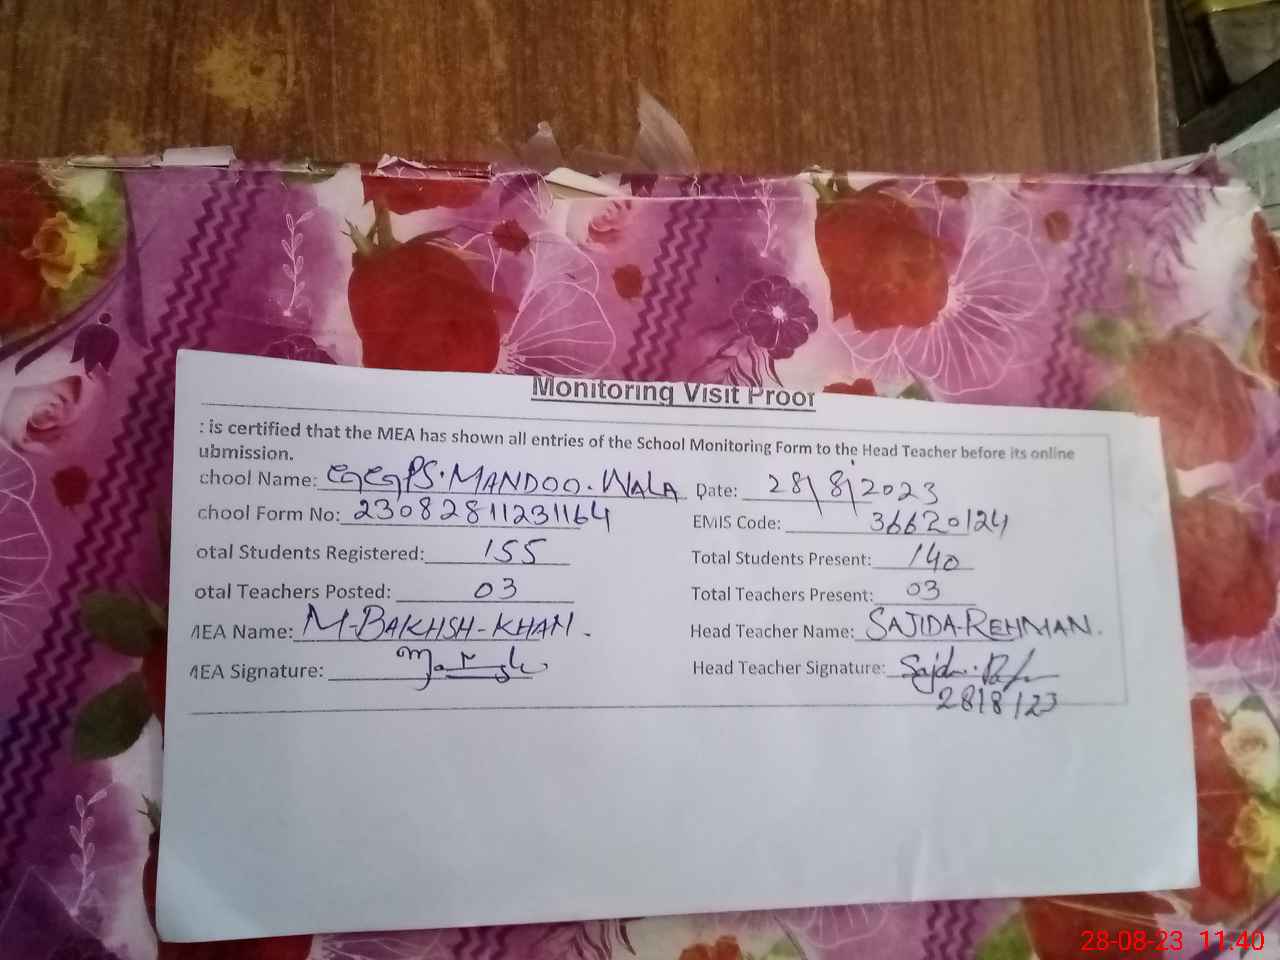 Monitoring Visit Proof
: is certified that the MEA has shown all entries of the School Monitoring Form to the Head Teacher before its online
ubmission.
chool Name: GGPS. MANDOO. WALA Date: 28\8\2023
chool Form No: 23082811231164 EMIS Code: 36620124
otal Students Registered: 155 Total Students Present: 140
otal Teachers Posted: 03 Total Teachers Present: 03
MEA Name: M-BAKHSH-KHAN. Head Teacher Name: SAJIDA-REHMAN.
MEA Signature: Head Teacher Signature: Sajda.
28/8/23
28-08-23 11:40